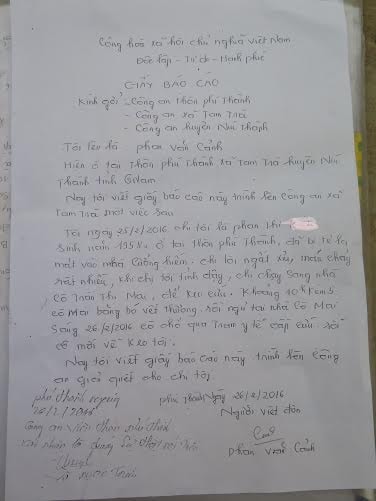 Cộng hoà xã hội chủ nghĩa việt Nam
Độc lập - Tự do - Hạnh phúc
GIẤY BÁO CÁO
Kính gởi - Công an thôn phú Thành
- Công an xã Tam Trà
- Công an huyện Núi Thành
Tôi tên là phan văn Cảnh
Hiện ở tại thôn phú Thành xã Tam Trà huyện Núi
Thành tỉnh
Nay tôi viết giấy báo cáo này trình lên công an xã
Tam Trà một việc sau
Tối ngày 25/2/2016 chị tôi là phan Thị
sinh năm 1958 ở tại thôn phú Thành, đã bị kẻ lạ
mặt vào nhà cưỡng hiếp. chị tôi ngất xỉu, máu chảy
rất nhiều, khi chị tôi tỉnh dậy, chị chạy sang nhà
cô Trần Thị Mai, để kêu cứu. Khoảng 10h
cô Mai băng bó vết thương rồi ngủ tại nhà cô Mai
Sáng 26/2/2016 có chở qua Trạm y tế cấp cứu rồi
về
Nay tôi viết giấy báo cáo này trình lên công
an giải quyết cho chị tôi
phú Thành ngày
26/2/2016
Phú Thành Ngày 26/2/2016
Người viết đơn
Công an viên thôn phú Thành
Cảnh
phan văn Cảnh